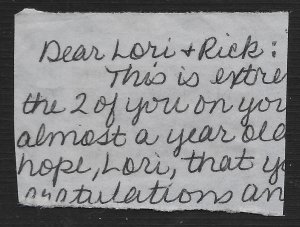 Dear Lori + Rick:
This is extre
the 2 of you on you
almost a year old
hope, Lori, that y
ratulations an